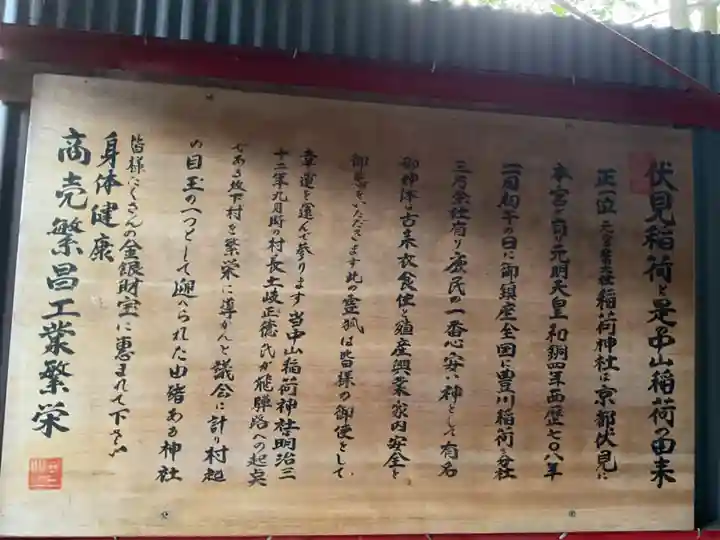 伏見稲荷と是中山稲荷の由来
正一位 稲荷神社は京都伏見に
本宮を司り元明天皇和銅四年西歴七〇八年
二月初午の日に御鎮座全国に豊川稲荷を分社
三万余社有り庶民の一番心安い神として有名
御神体は古来衣食住と殖産興業家内安全と
御告をいただきます此の霊狐は皆様の御使をして
幸運を運んで参ります当中山稲荷神社明治三
十二年九月時の村長土岐正徳氏が飛騨路への起点
である坂下村を繁栄に導かんと議会に計り村起
の目玉の一つとして迎へられた由緒ある神社
皆様たくさんの金銀財宝に恵まれて下さい
身体健康
商売繁昌工業繁栄